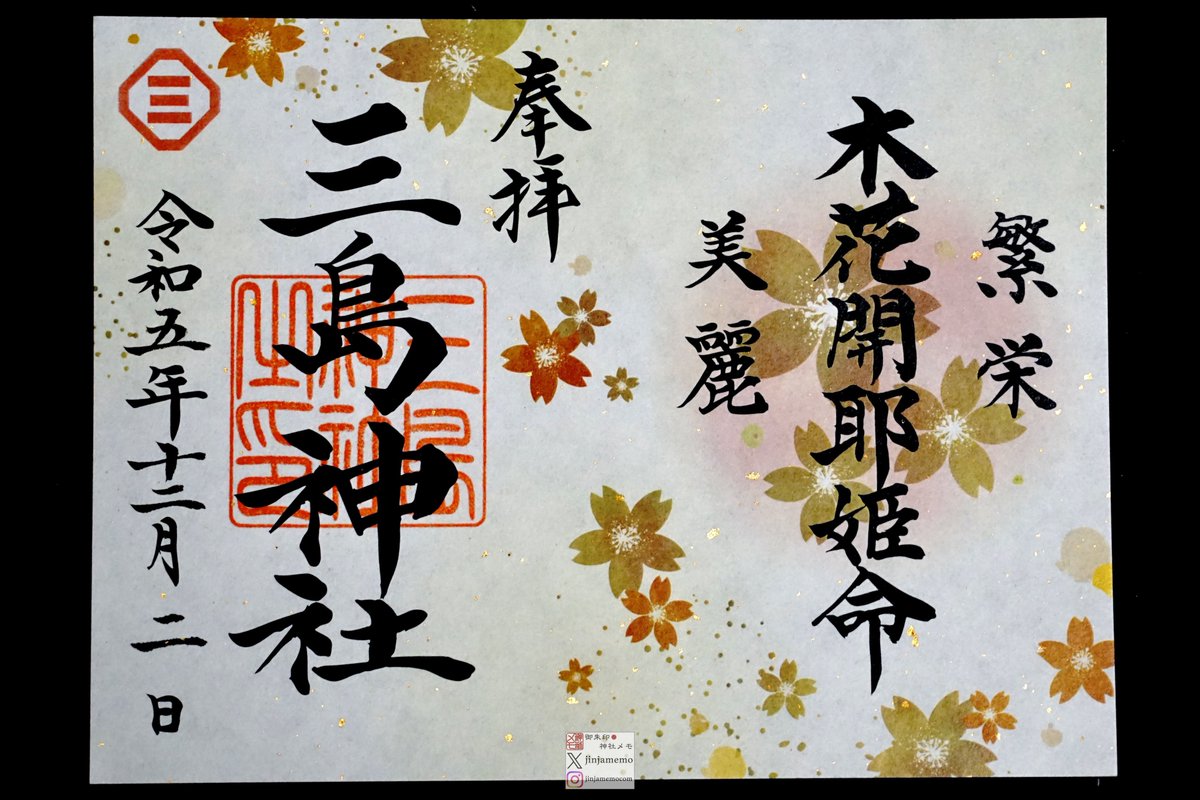 繁栄
木花開耶姫命
美麗
奉拝
三島神社
三島神社之印
令和五年十二月二日
三
御朱印
神社メモ
jinjamemo
jinjamemocom